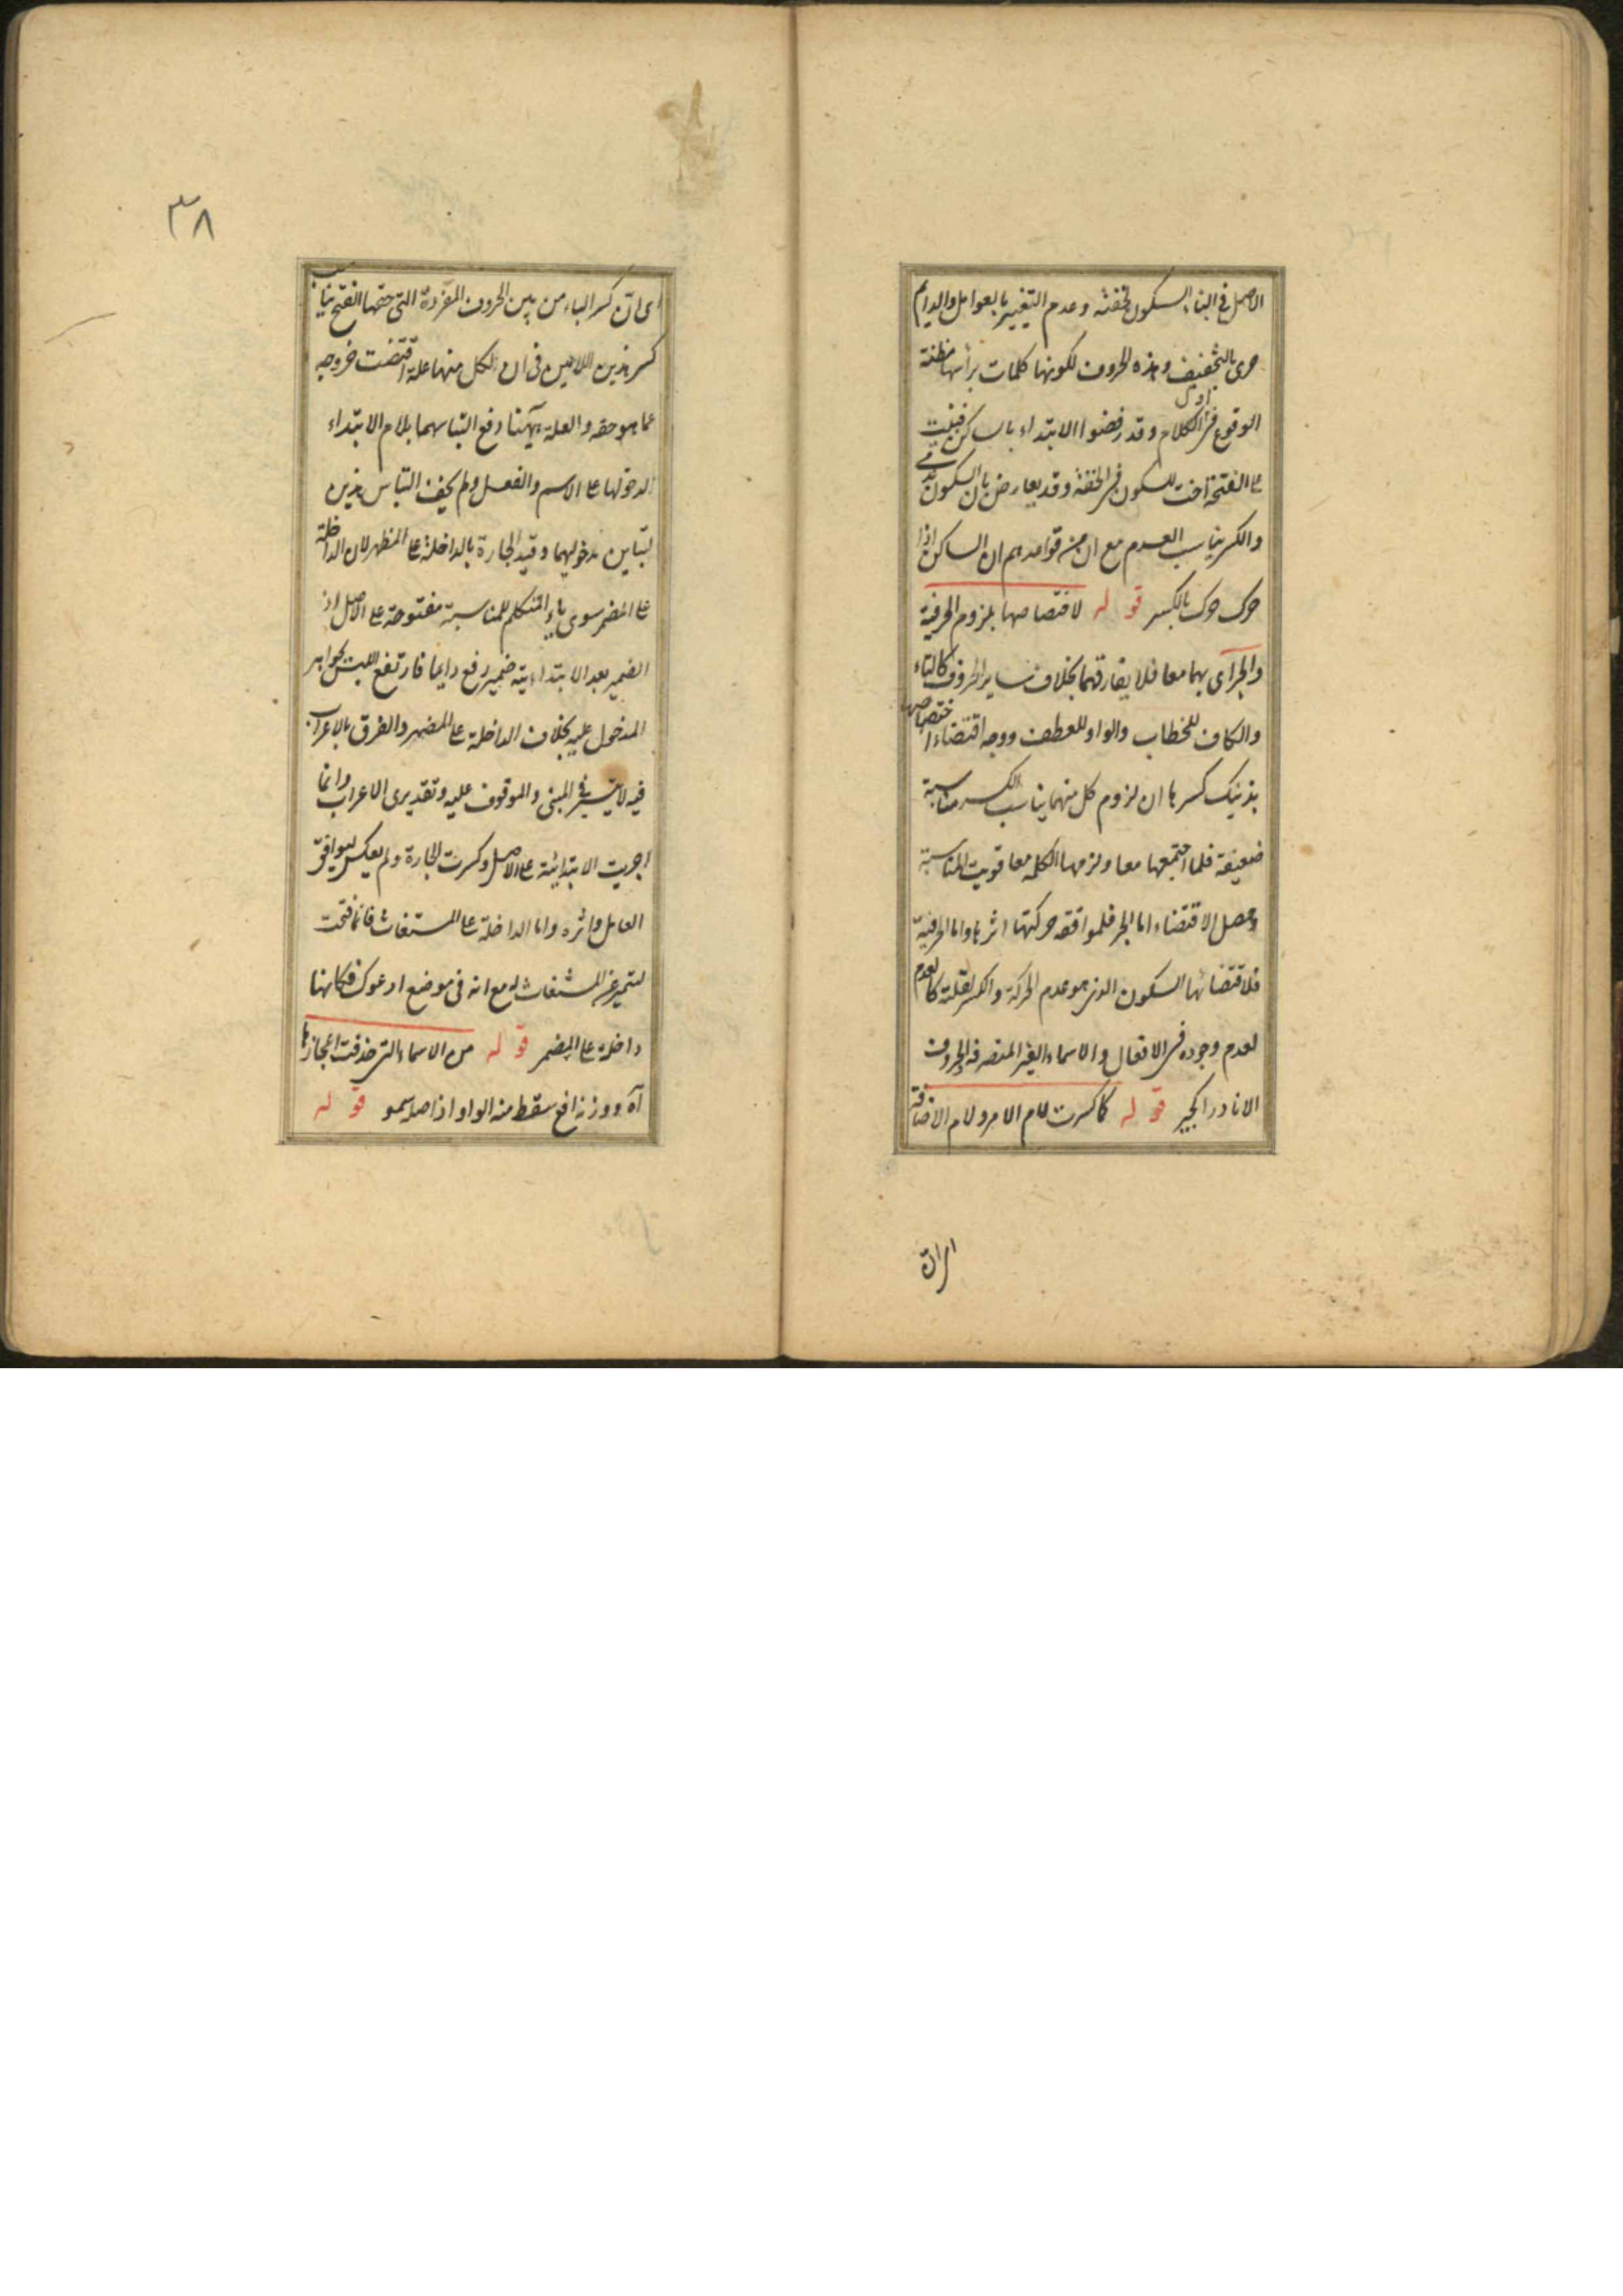 الاصل فى البناء السكون لخفته وعدم التغيير بالعوامل والدايم
حرى بالتخفيف وهذه الحروف لكونها كلمات برأسها مظنة
الوقوع فى اول الكلام وقد رفضوا الابتداء بالساكن فبنيت
على الفتحة اخت السكون فى الخفة وقد يعارض بان السكون عدمى
والكسر يناسب العدم مع ان من قواعدهم ان الساكن اذا
حرك حرك بالكسر قوله لاختصاصها بلزوم الحرفية
والجر اى بهما معا فلا يفارقهما بخلاف ساير الحروف كالتاء
والكاف للخطاب والواو للعطف ووجه اقتضاء اختصاصها
بذينك كسرها ان لزوم كل منهما يناسب الكسر مناسبة
ضعيفة فلما اجتمعها معا ولزمها الكلمه معا قويت المناسبة
وحصل الاقتضاء اما الجر فلموافقه حركتها اثرها واما الحرفية
فلاقتضائها السكون الذى هو عدم الحركة والكسر لقلته كالعدم
لعدم وجوده فى الافعال والاسماء الغير المنصرفه والحروف
الا نادرا كجير قوله كما كسرت لام الامر ولام الاضافة
اى ان
٣٨
اى ان كسر الباء من بين الحروف المفردة التى حقها الفتح يناسب
كسر هذين اللامين فى ان لكل منها علة اقتضت خروجه
عما هو حقه والعلة هيهنا دفع التباسهما بلام الابتداء
لدخولها على الاسم والفعل ولم يخف التباس هذين
لتباين مدخوليهما وقيد الجارة بالداخلة على المظهر لان الداخلة
على المضمر سوى ياء المتكلم للمناسبة مفتوحة على الاصل اذ
الضمير بعد الابتدايية ضمير رفع دايما فارتفع اللبس بجواهر
المدخول عليه بخلاف الداخلة على المضهر والفرق بالاعراب
فيه لا يتيسر فى المبنى والموقوف عليه وتقديرى الاعراب وانما
اجريت الابتدائية على الاصل وكسرت الجارة ولم يعكس ليوافق
العامل واثره واما الداخلة على المستغاث فانما فتحت
لتميز عن المستغاث له مع انه فى موضع ادعوك فكانها
داخلة على المضمر قوله من الاسماء التى حذفت اعجازها
آه ووزنه افع سقط منه الواو اذ اصله سمو قوله